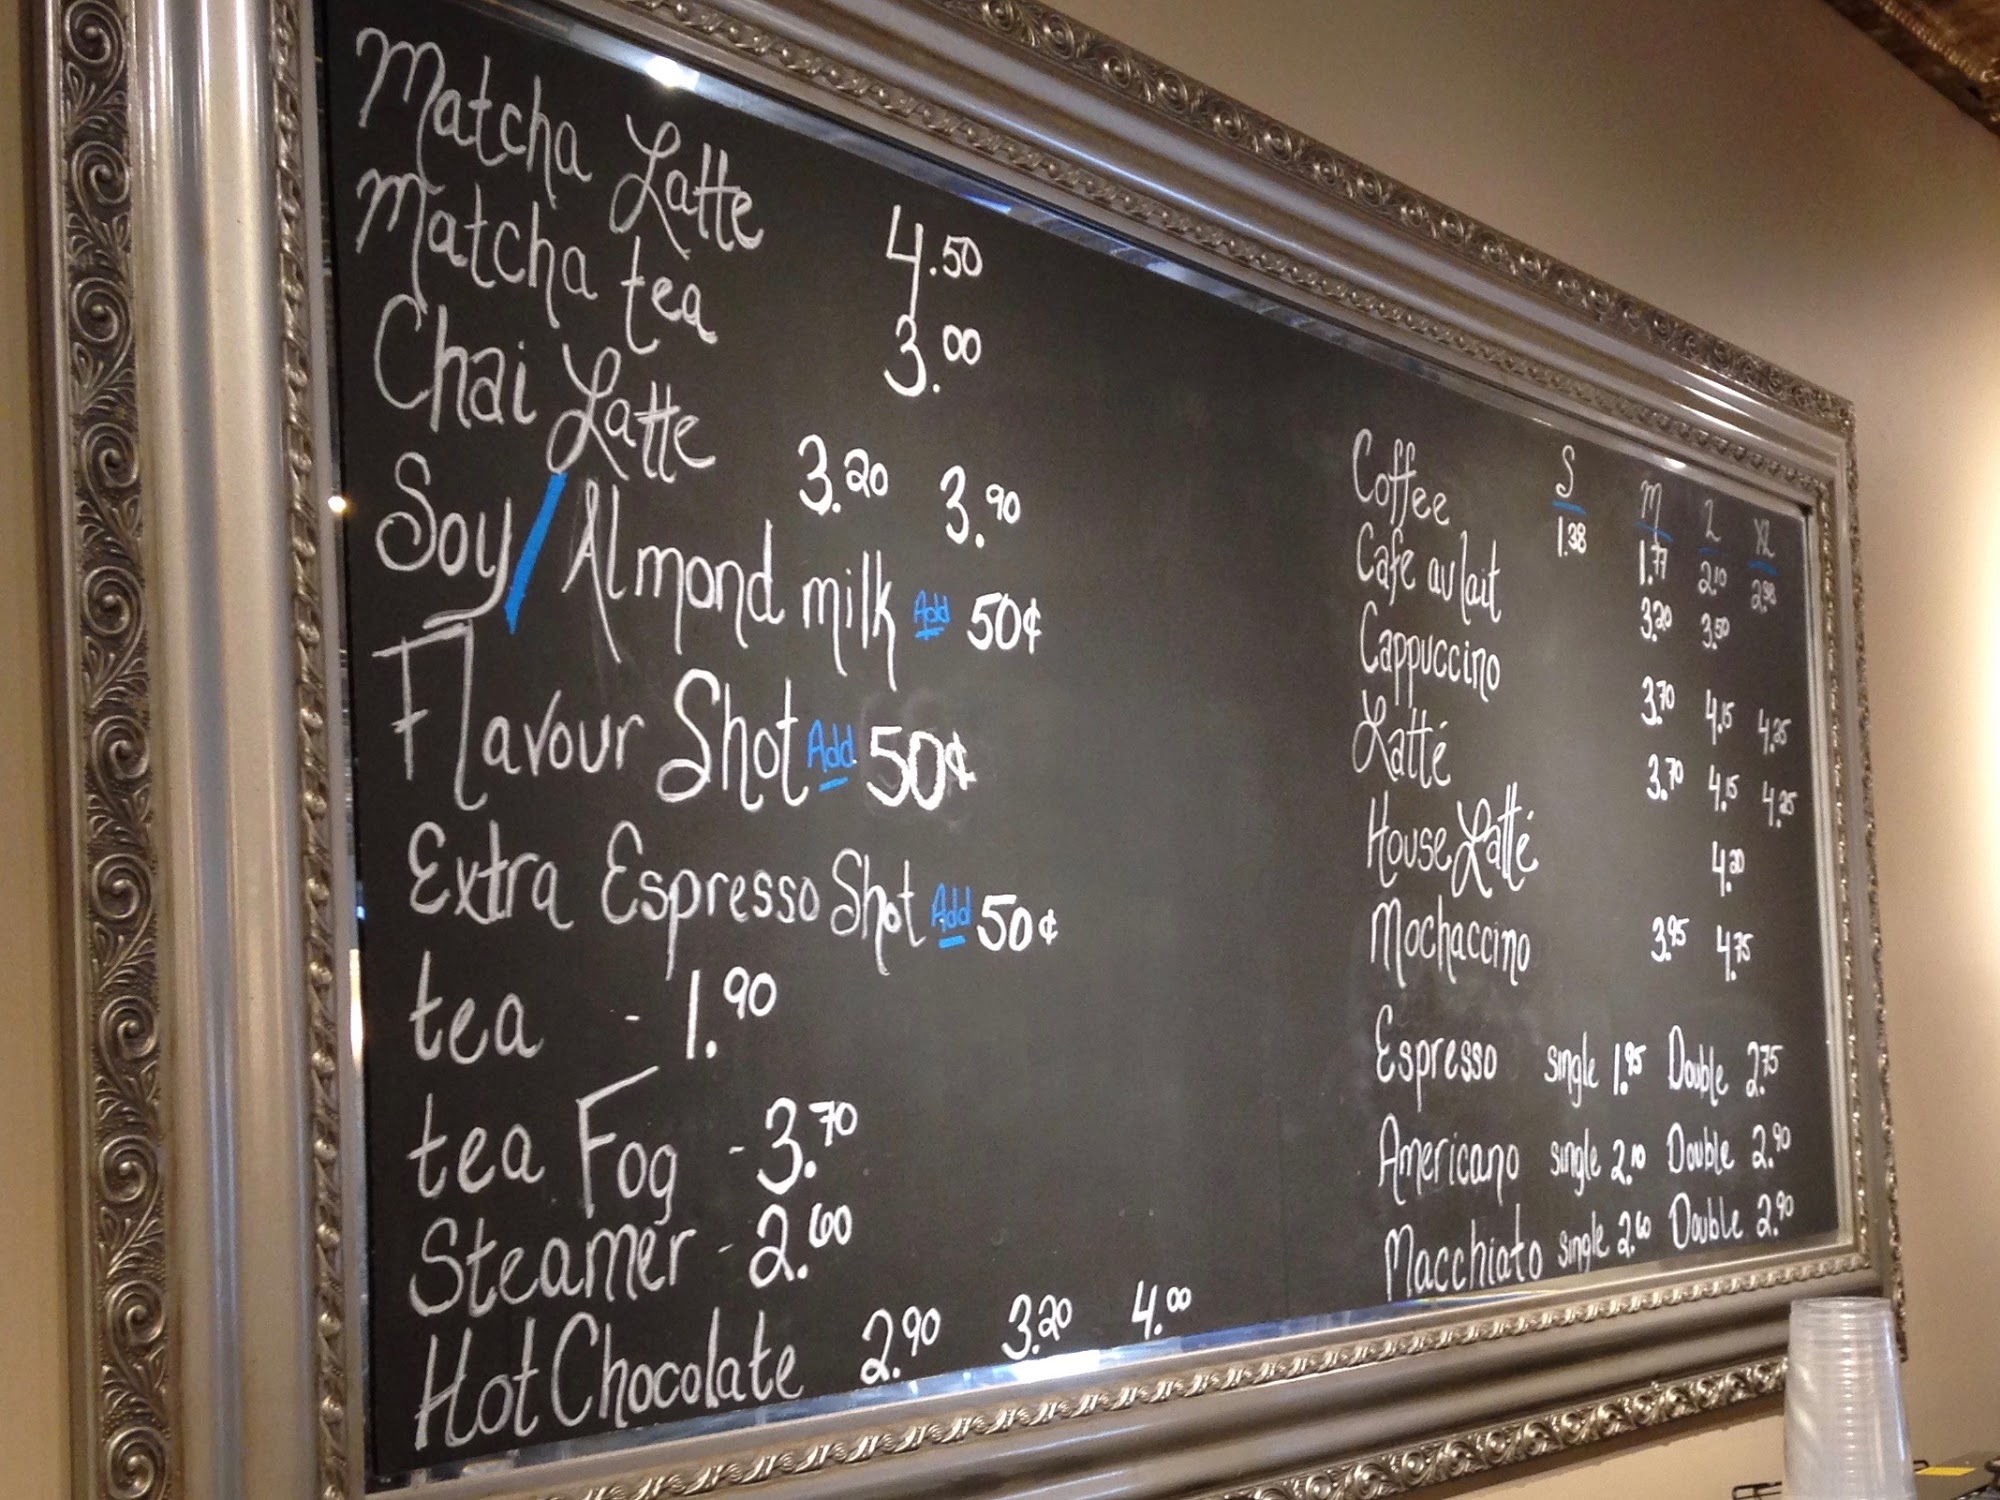 Matcha Latte 4.50
Matcha tea 3.00
Chai Latte 3.20 3.90
Soy/Almond milk Add 50¢
Flavour Shot Add 50¢
Extra Espresso Shot Add 50¢
tea - 1.90
tea Fog - 3.70
Steamer - 2.60
Hot Chocolate 2.90 3.20 4.00
S M L XL
Coffee 1.38 1.77 2.10 2.38
Cafe au lait 3.20 3.50
Cappuccino 3.70 4.15 4.25
Latté 3.70 4.15 4.25
House Latté 4.20
Mochaccino 3.95 4.75
Espresso single 1.95 Double 2.75
Americano single 2.10 Double 2.90
Macchiato single 2.60 Double 2.90